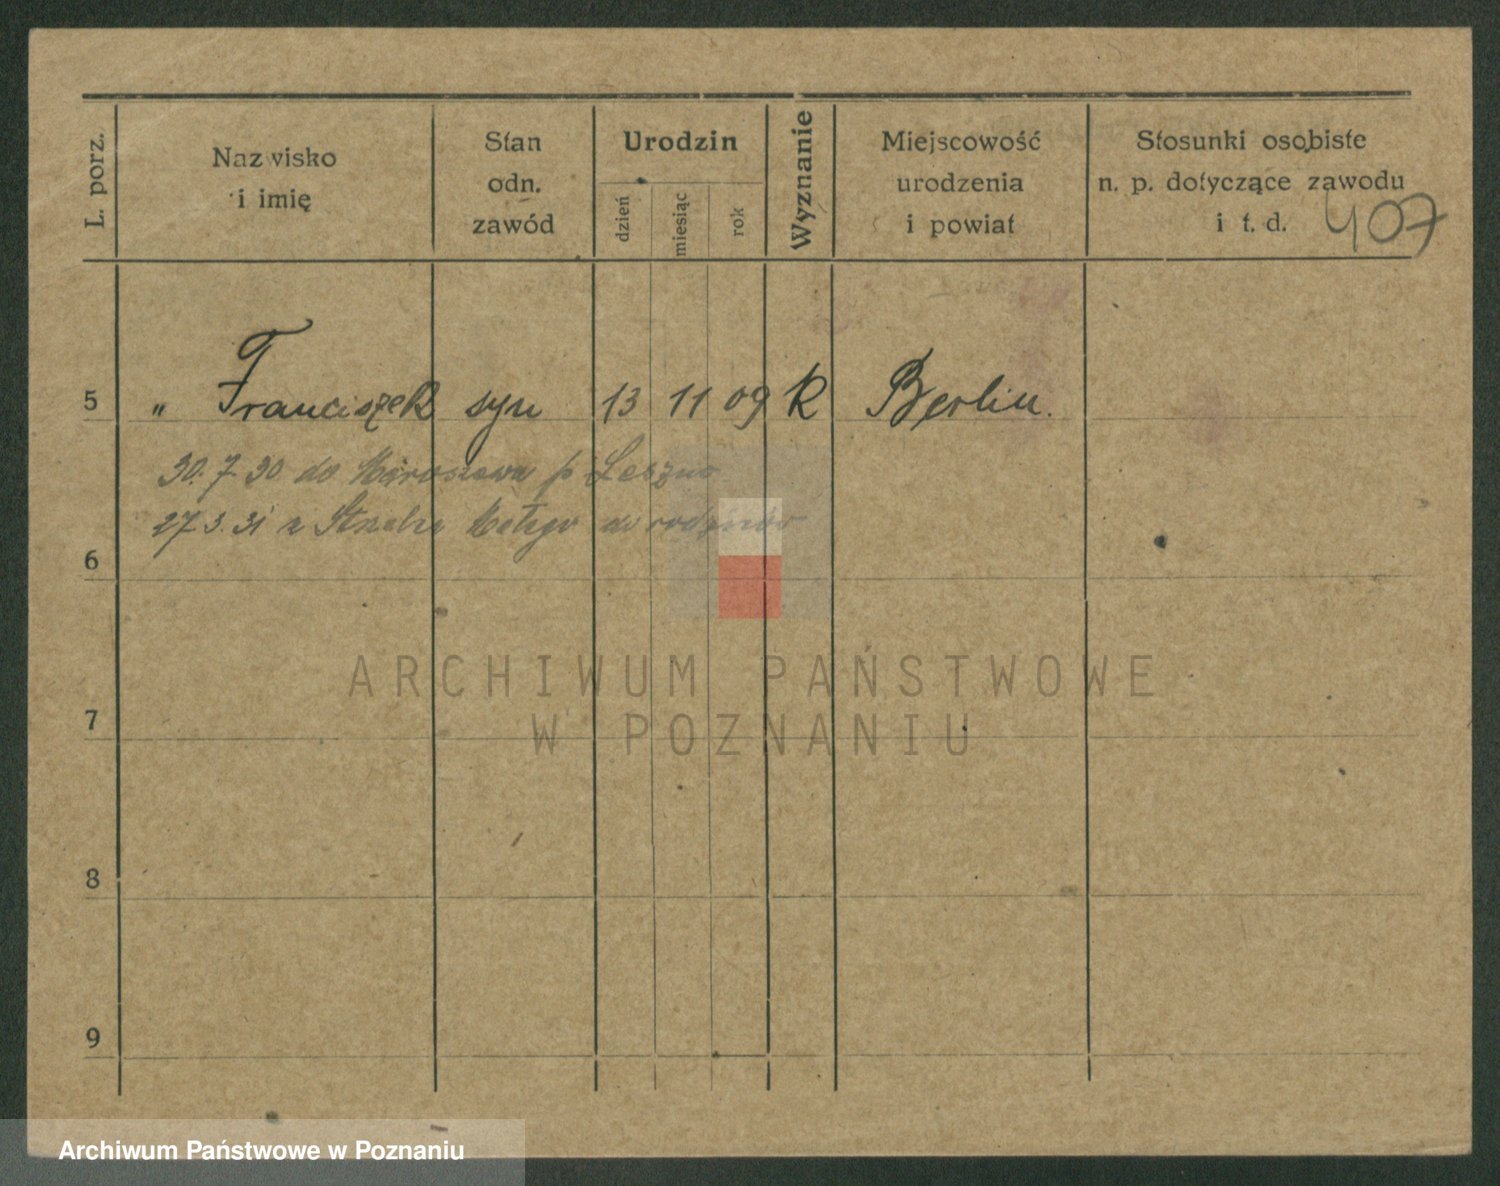 L. porz.
Nazwisko
i imię
Stan
odn.
zawód
Urodzin
dzień
miesiąc
rok
Wyznanie
Miejscowość
urodzenia
i powiat
Stosunki osobiste
n. p. dotyczące zawodu
i t. d.
407
5 " Franciszek syn 13 11 09 K Berlin.
30.7.30 do p. Leszno
27.3.31 z do rodziców
6
ARCHIWUM PAŃSTWOWE
W POZNANIU
7
8
9
Archiwum Państwowe w Poznaniu